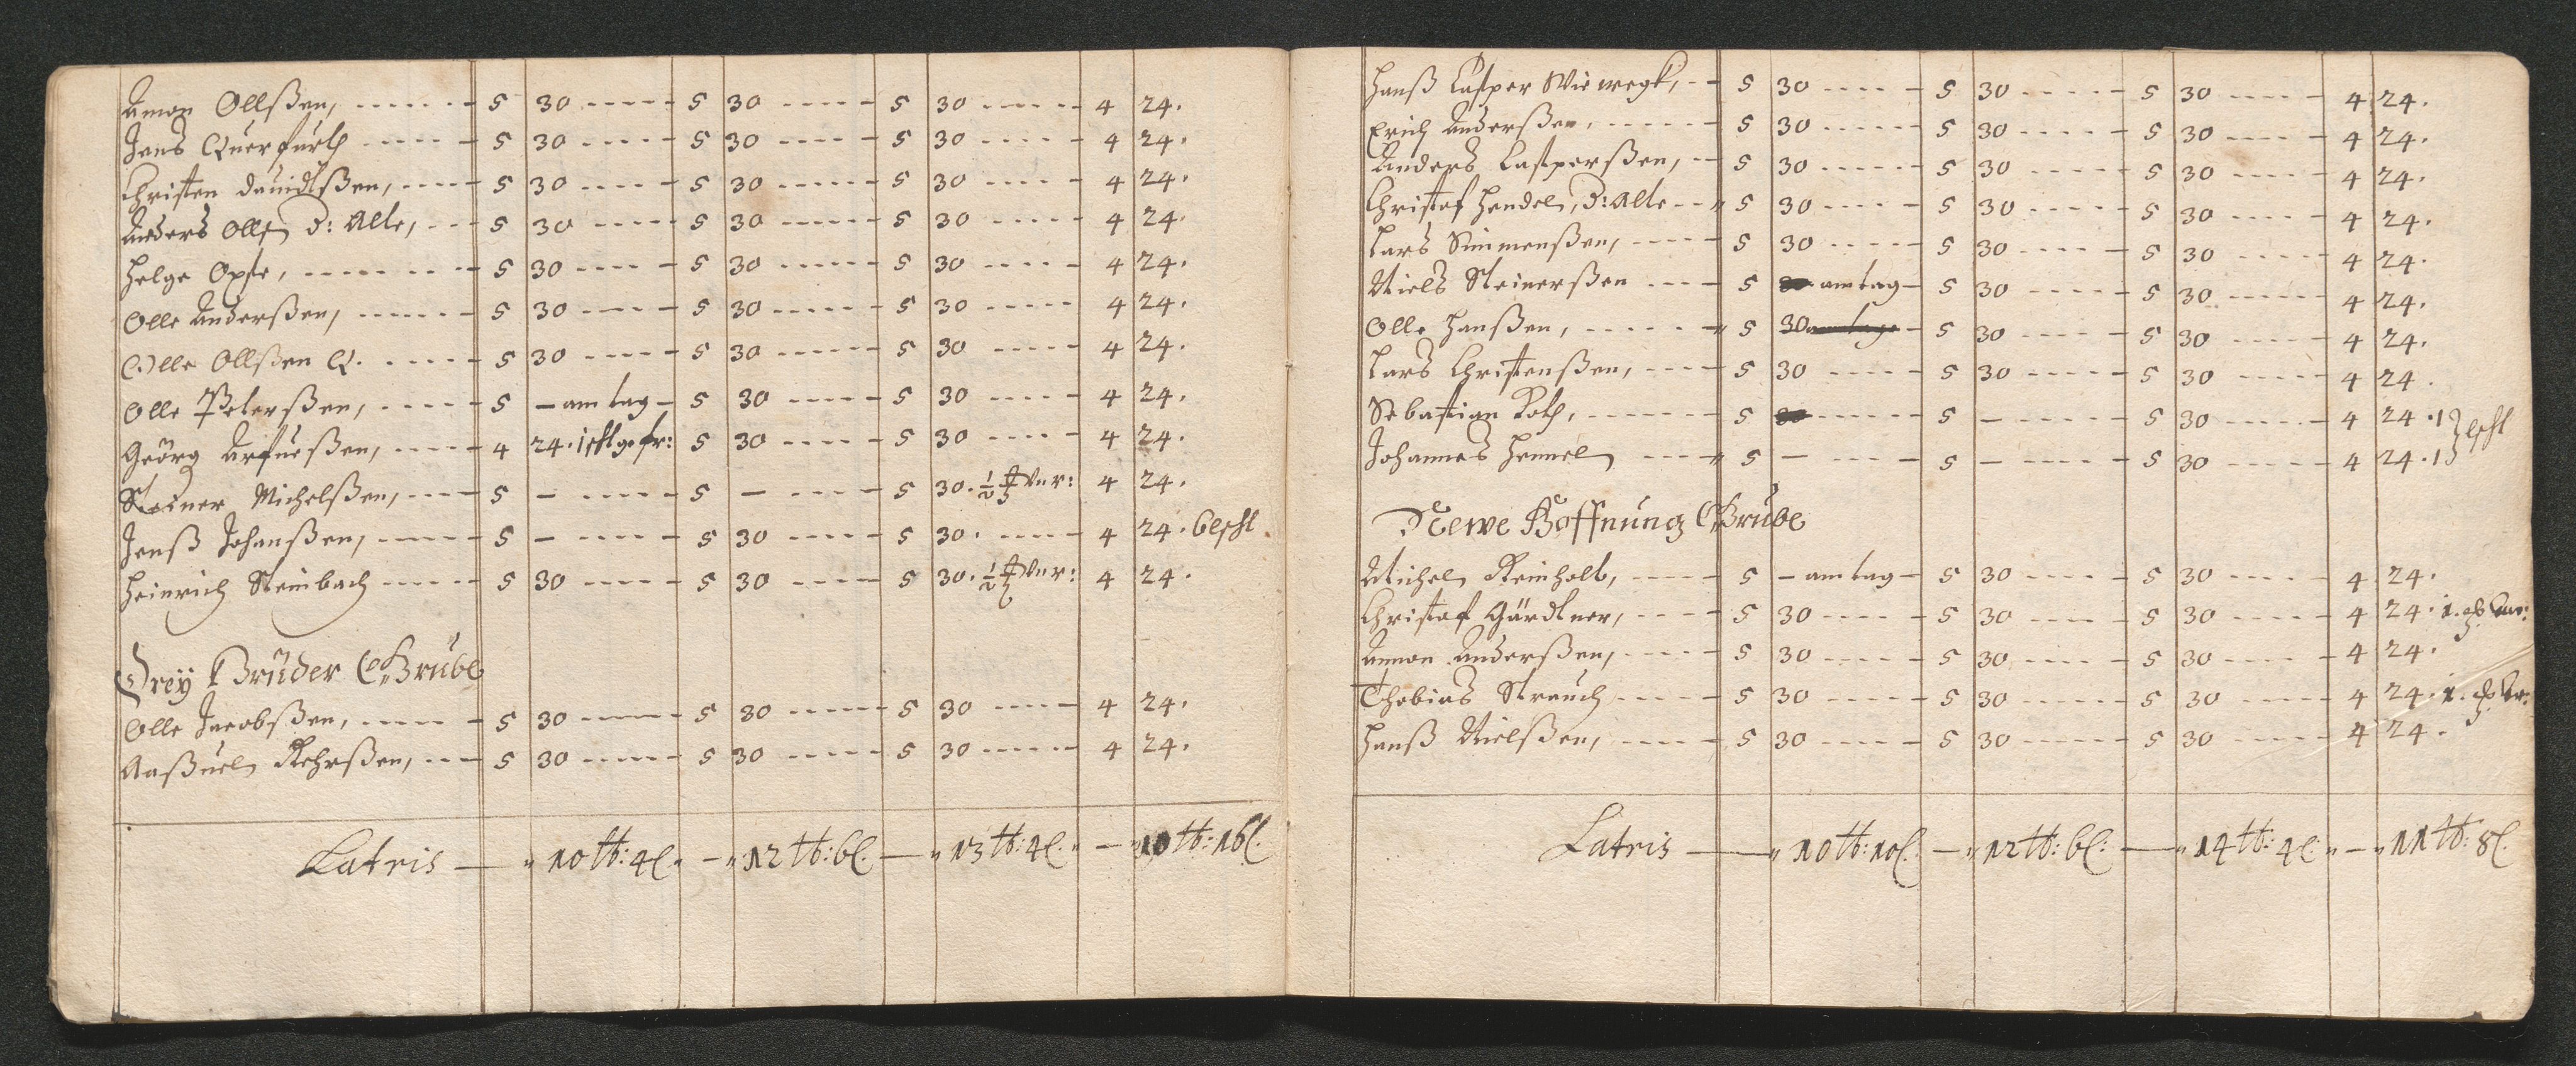 Amon Ollßen, ------ 5 30 ----- 5 30 ----- 5 30 ----- 4 24.
Jens Querfurth ----- 5 30 ----- 5 30 ----- 5 30 ---- 4 24.
Christen Dauidtßen, ---- 5 30 ----- 5 30 ----- 5 30 ---- 4 24.
Anders Olls d: Alte, --- 5 30 ----- 5 30 ----- 5 30 ----- 4 24.
Helge Opste, -------- 5 30 ----- 5 30 ----- 5 30 ----- 4 24.
Olle Anderßen, ------ 5 30 ----- 5 30 ----- 5 30 ----- 4 24.
Olle Ollßen Q. ----- 5 30 ----- 5 30 ----- 5 30 ----- 4 24.
Olle Peterßen, ----- 5 – am tag – 5 30 ----- 5 30 ----- 4 24.
Georg Arfueßen, ---- 4 24. 5 30 ---- 5 30 ---- 4 24.
Steiner Michelßen, ---- 5 – ----- 5 – ---- 5 30. ½ 4 24.
Jenß Johanßen, ----- 5 – ----- 5 30 ---- 5 30. ---- 4 24. 6 schl
Heinrich Steinbach ----- 5 30 ----- 5 30 ---- 5 30. ½ 4 24.
Drey Brüder Grube
Olle Jacobßen, ----- 5 30 ----- 5 30 ----- 5 30 ---- 4 24.
Aaßuel Rehrßen, --- 5 30 ----- 5 30 ----- 5 30 ----- 4 24.
Latris — „ 10 tß: 4 ß. – „ 12 tß: 6 ß. — „ 13 tß: 4 ß. „ – „ 10 tß: 16 ß.
Hanß Casper Wiewegk, -- 5 30 ---- 5 30 ----- 5 30 ---- 4 24.
Erich Anderßen, ------ 5 30 ----- 5 30 ----- 5 30 ---- 4 24.
Anders Casperßen, -- 5 30 ----- 5 30 ----- 5 30 ---- 4 24.
Christof Hendel, d: Alte -- „ 5 30 ---- 5 30 ----- 5 30 ---- 4 24.
Lars Simmenßen, ---- 5 30 ----- 5 30 ----- 5 30 ---- 4 24.
Niels Steinerßen ---- 5 am tag – 5 30 ----- 5 30 ----- 4 24.
Olle Hanßen, ----- „ 5 30 am tage – 5 30 ----- 5 30 ----- 4 24.
Lars Christenßen, ---- 5 30 ----- 5 30 ----- 5 30 ----- 4 24.
Sebastian Roth, ------ 5 30 ----- 5 – ----- 5 30 ----- 4 24. 1
Johannes Hennel ---- „ 5 – ---- 5 – ----- 5 30 ----- 4 24. 1 } schl
Newe Hoffnung Grube
Michel Reinholt, ---- 5 – am tag – 5 30 ----- 5 30 ---- 4 24.
Christof Gärdtner, ---- 5 30 ----- 5 30 ---- 5 30 ----- 4 24. 1.
Amon Anderßen, ---- 5 30 ----- 5 30 ----- 5 30 ---- 4 24.
Thobias Strauch ----- 5 30 ----- 5 30 ----- 5 30 ----- 4 24. 1.
Hanß Nielßen, ----- 5 30 ----- 5 30 ----- 5 30 ----- 4 24.
Latris — „ 10 tß: 10 ß. – „ 12 tß: 6 ß: — „ 14 tß: 4 ß: „ – „ 11 tß: 8 ß.